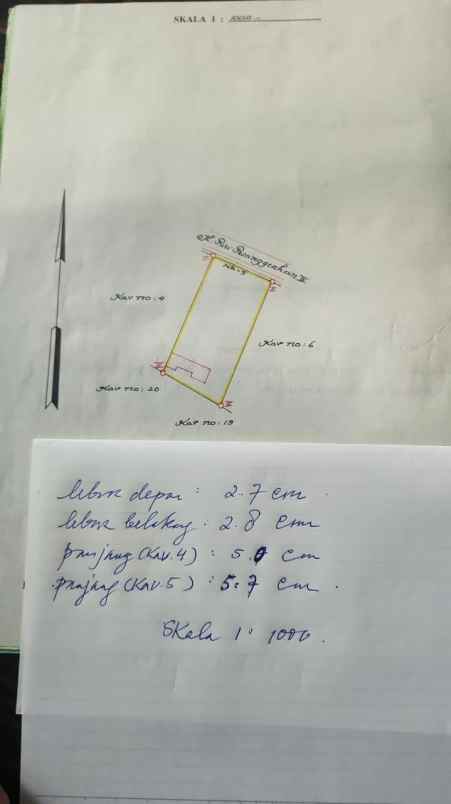 SKALA 1 :
Kav no : 4
Kav no : 6
Kav no : 20
Kav no : 19
lebar depan : 2.7 cm
lebar belakang : 2.8 cm
panjang (Kav.4) : 5.0 cm
panjang (Kav.5) : 5.7 cm
Skala 1 : 1000